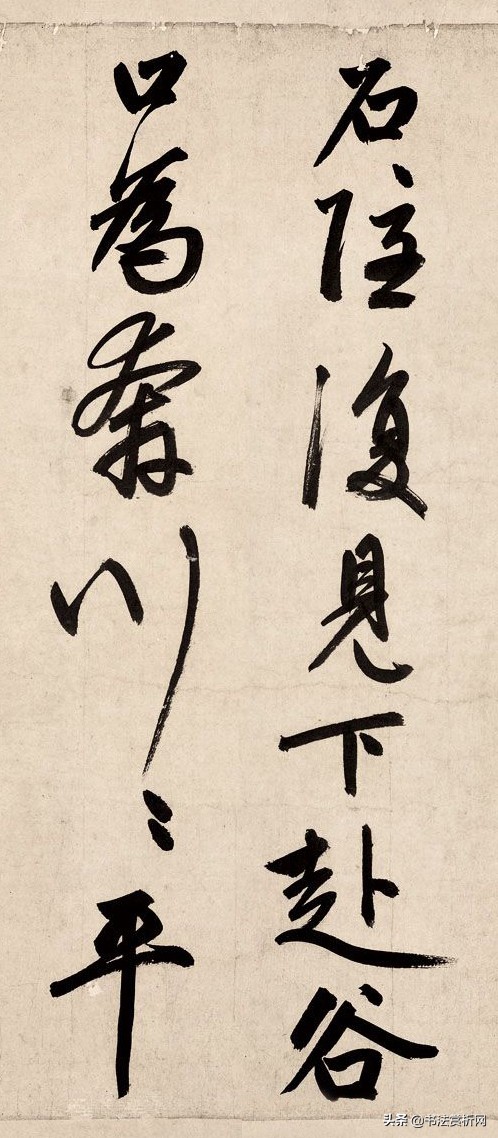 石隱復見下赴谷
口為奔川〻平
头条 @书法赏析网